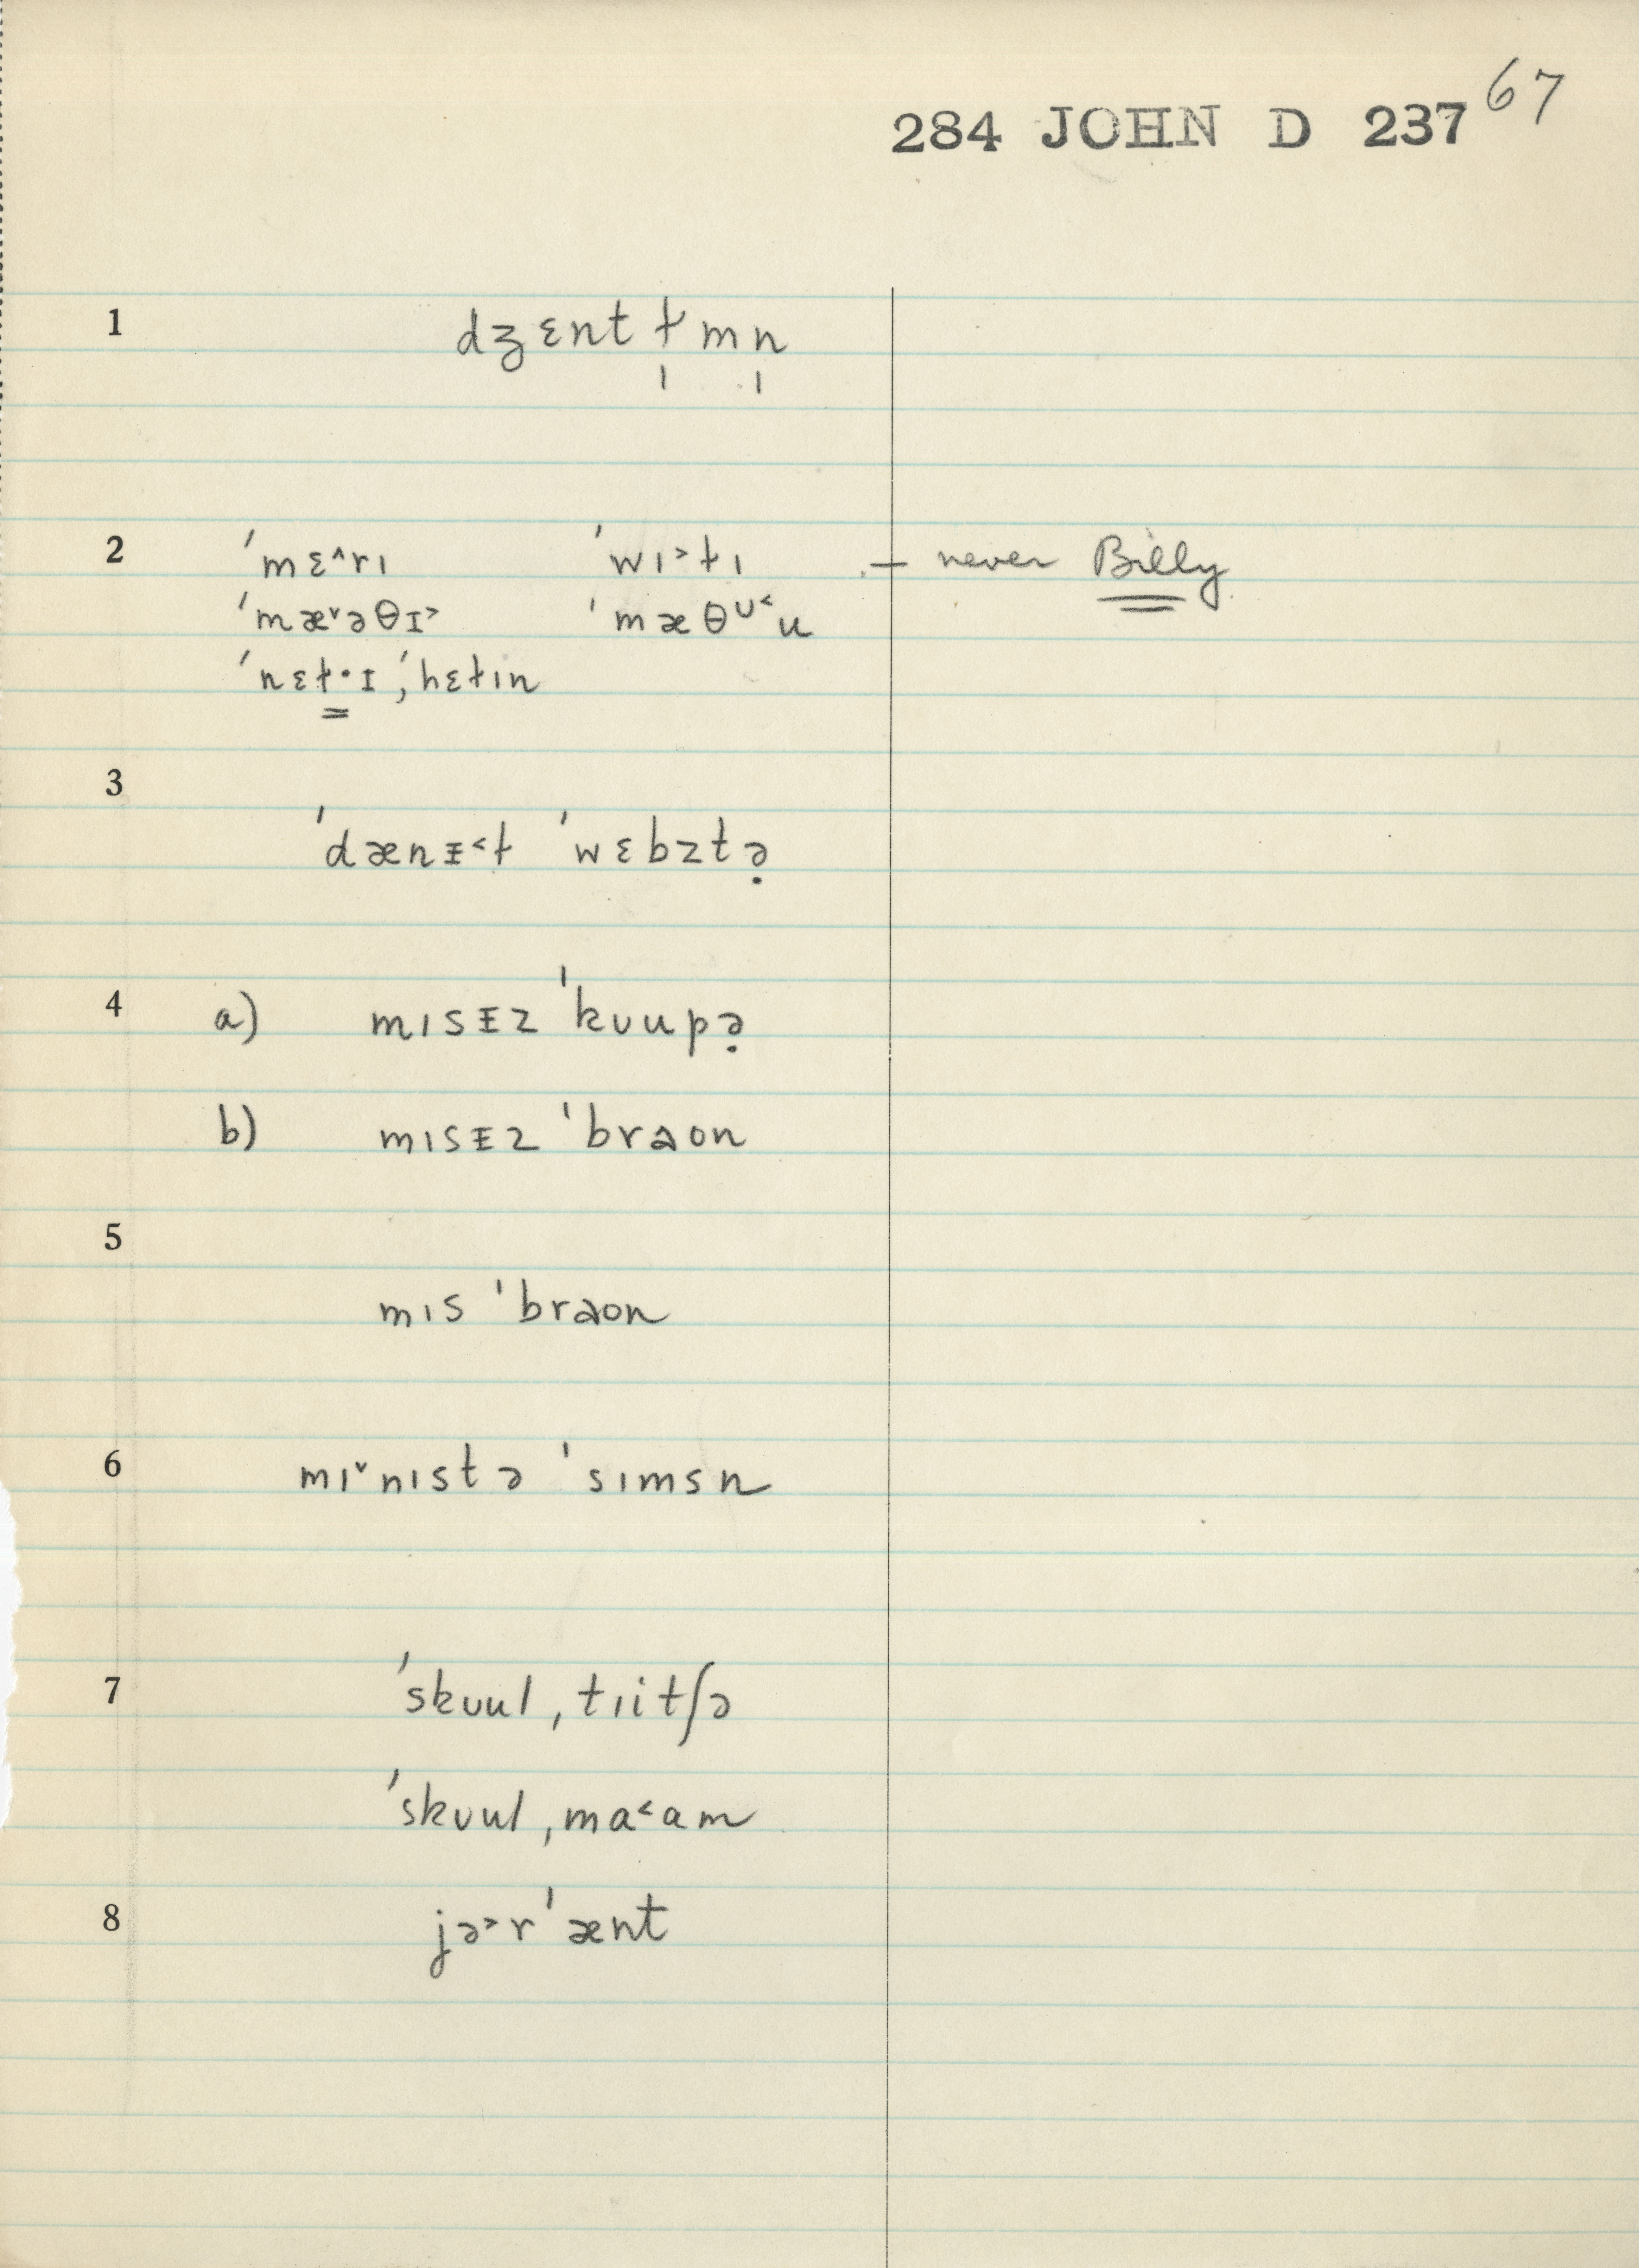 284 JOHN D 237 67
1 dʒɛntɫ̩mn̩
2 ˈmɛ^rɪ ˈwɪ˃ɫɪ – never Billy
ˈmæ˅əθɪ˃ ˈmæθᴜ˂u
ˈnɛɫ·ɪ, ˈhɛɫɪn
3 ˈdænᵻ˂ɫ ˈwɛbztə̣
4 a) mɪsᵻz ˈkᴜupə̣
b) mɪsᵻz ˈbraon
5 mɪs ˈbraon
6 mɪ˅nɪstə ˈsɪmsn
7 ˈskᴜul ˌtɪitʃə
ˈskᴜul ˌma˂am
8 jə˃rˈænt